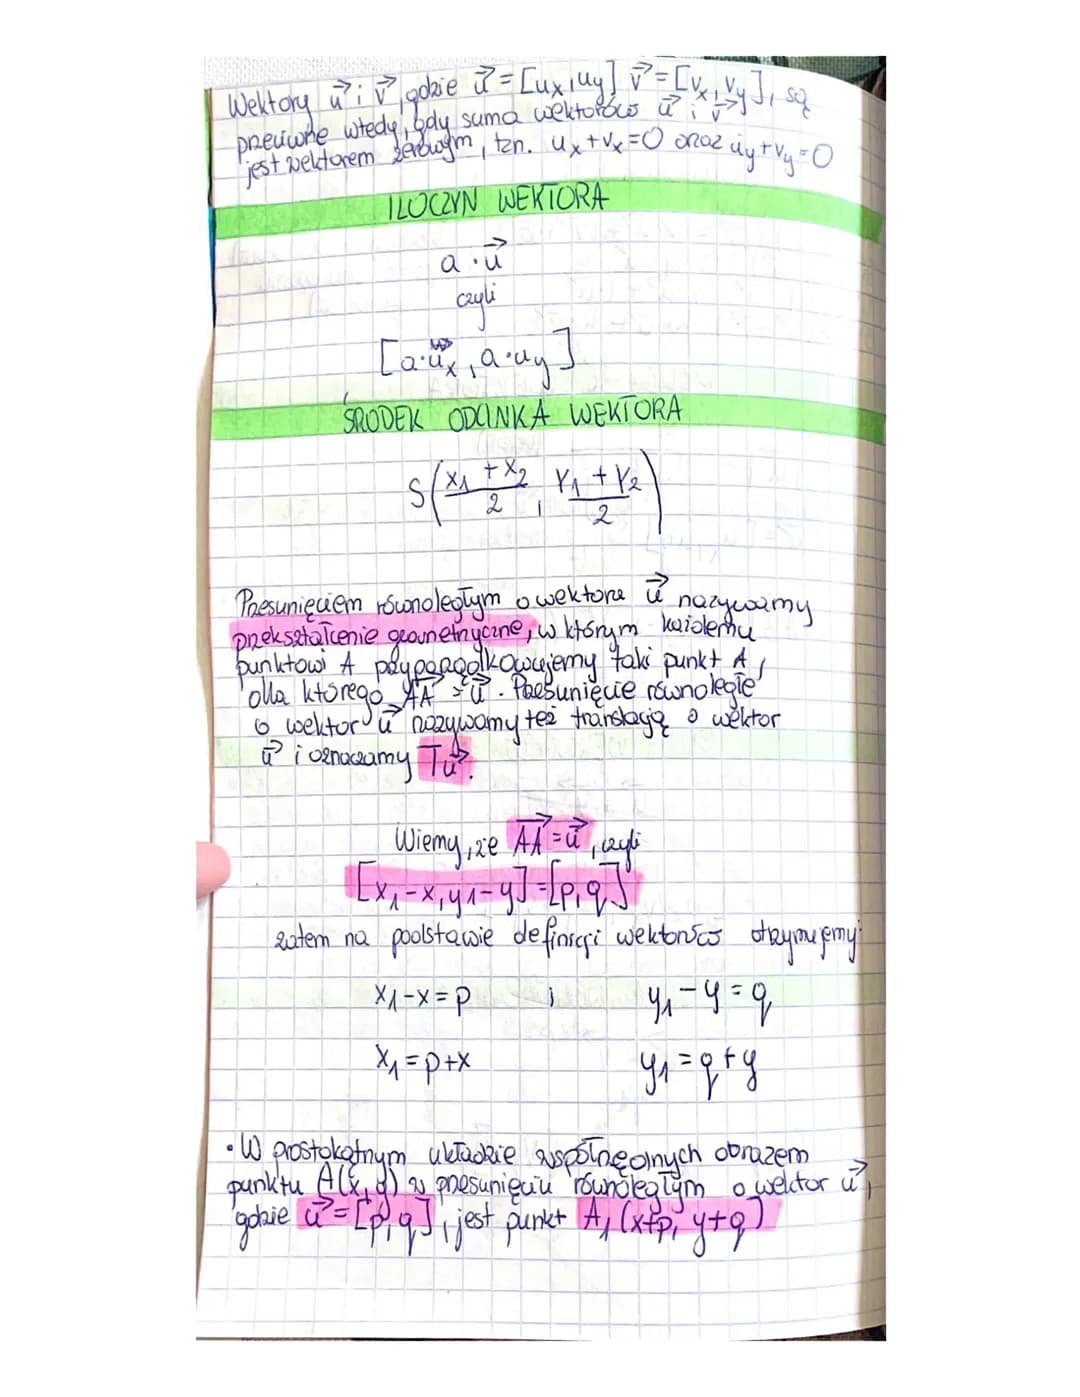 Wektory u⃗ i v⃗, gdzie u⃗ = [ux, uy] v⃗ = [vx, vy], są
przeciwne wtedy, gdy suma wektorów u⃗ i v⃗
jest wektorem zerowym, tzn. ux + vx = 0 oraz uy + vy = 0
ILOCZYN WEKTORA
a · u⃗
czyli
[a·ux, a·uy]
ŚRODEK ODCINKA WEKTORA
S(x₁ + x₂ / 2, y₁ + y₂ / 2)
Przesunięciem równoległym o wektorze u⃗ nazywamy
przekształcenie geometryczne, w którym każdemu
punktowi A przyporządkowujemy taki punkt A₁
dla którego AA⃗ = u⃗. Przesunięcie równoległe
o wektor u⃗ nazywamy też translacją o wektor
u⃗ i oznaczamy Tu⃗.
Wiemy, że AA⃗ = u⃗, czyli
[x₁-x, y₁-y] = [p, q]
zatem na podstawie definicji wektorów otrzymujemy:
x₁-x = p i y₁-y = q
x₁ = p+x y₁ = q+y
• W prostokątnym układzie współrzędnych obrazem
punktu A(x, y) w przesunięciu równoległym o wektor u⃗,
gdzie u⃗ = [p, q], jest punkt A₁(x+p, y+q)